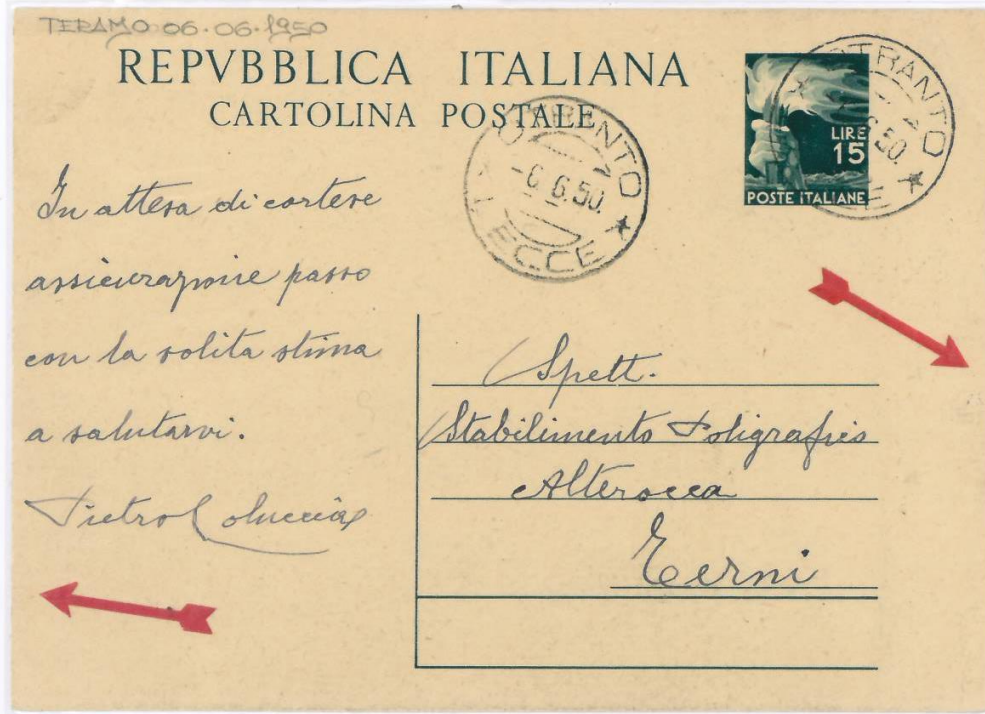 TERAMO 06.06.1950
REPVBBLICA ITALIANA
CARTOLINA POSTALE
OTRANTO
-6.6.50.
★ LECCE ★
OTRANTO
6.50.
★ LECCE ★
LIRE
15
POSTE ITALIANE
In attesa di cortese
assicurazione passo
con la solita stima
a salutarvi.
Pietro Coluccia
Spett.
Stabilimento Poligrafico
Alterocca
Terni